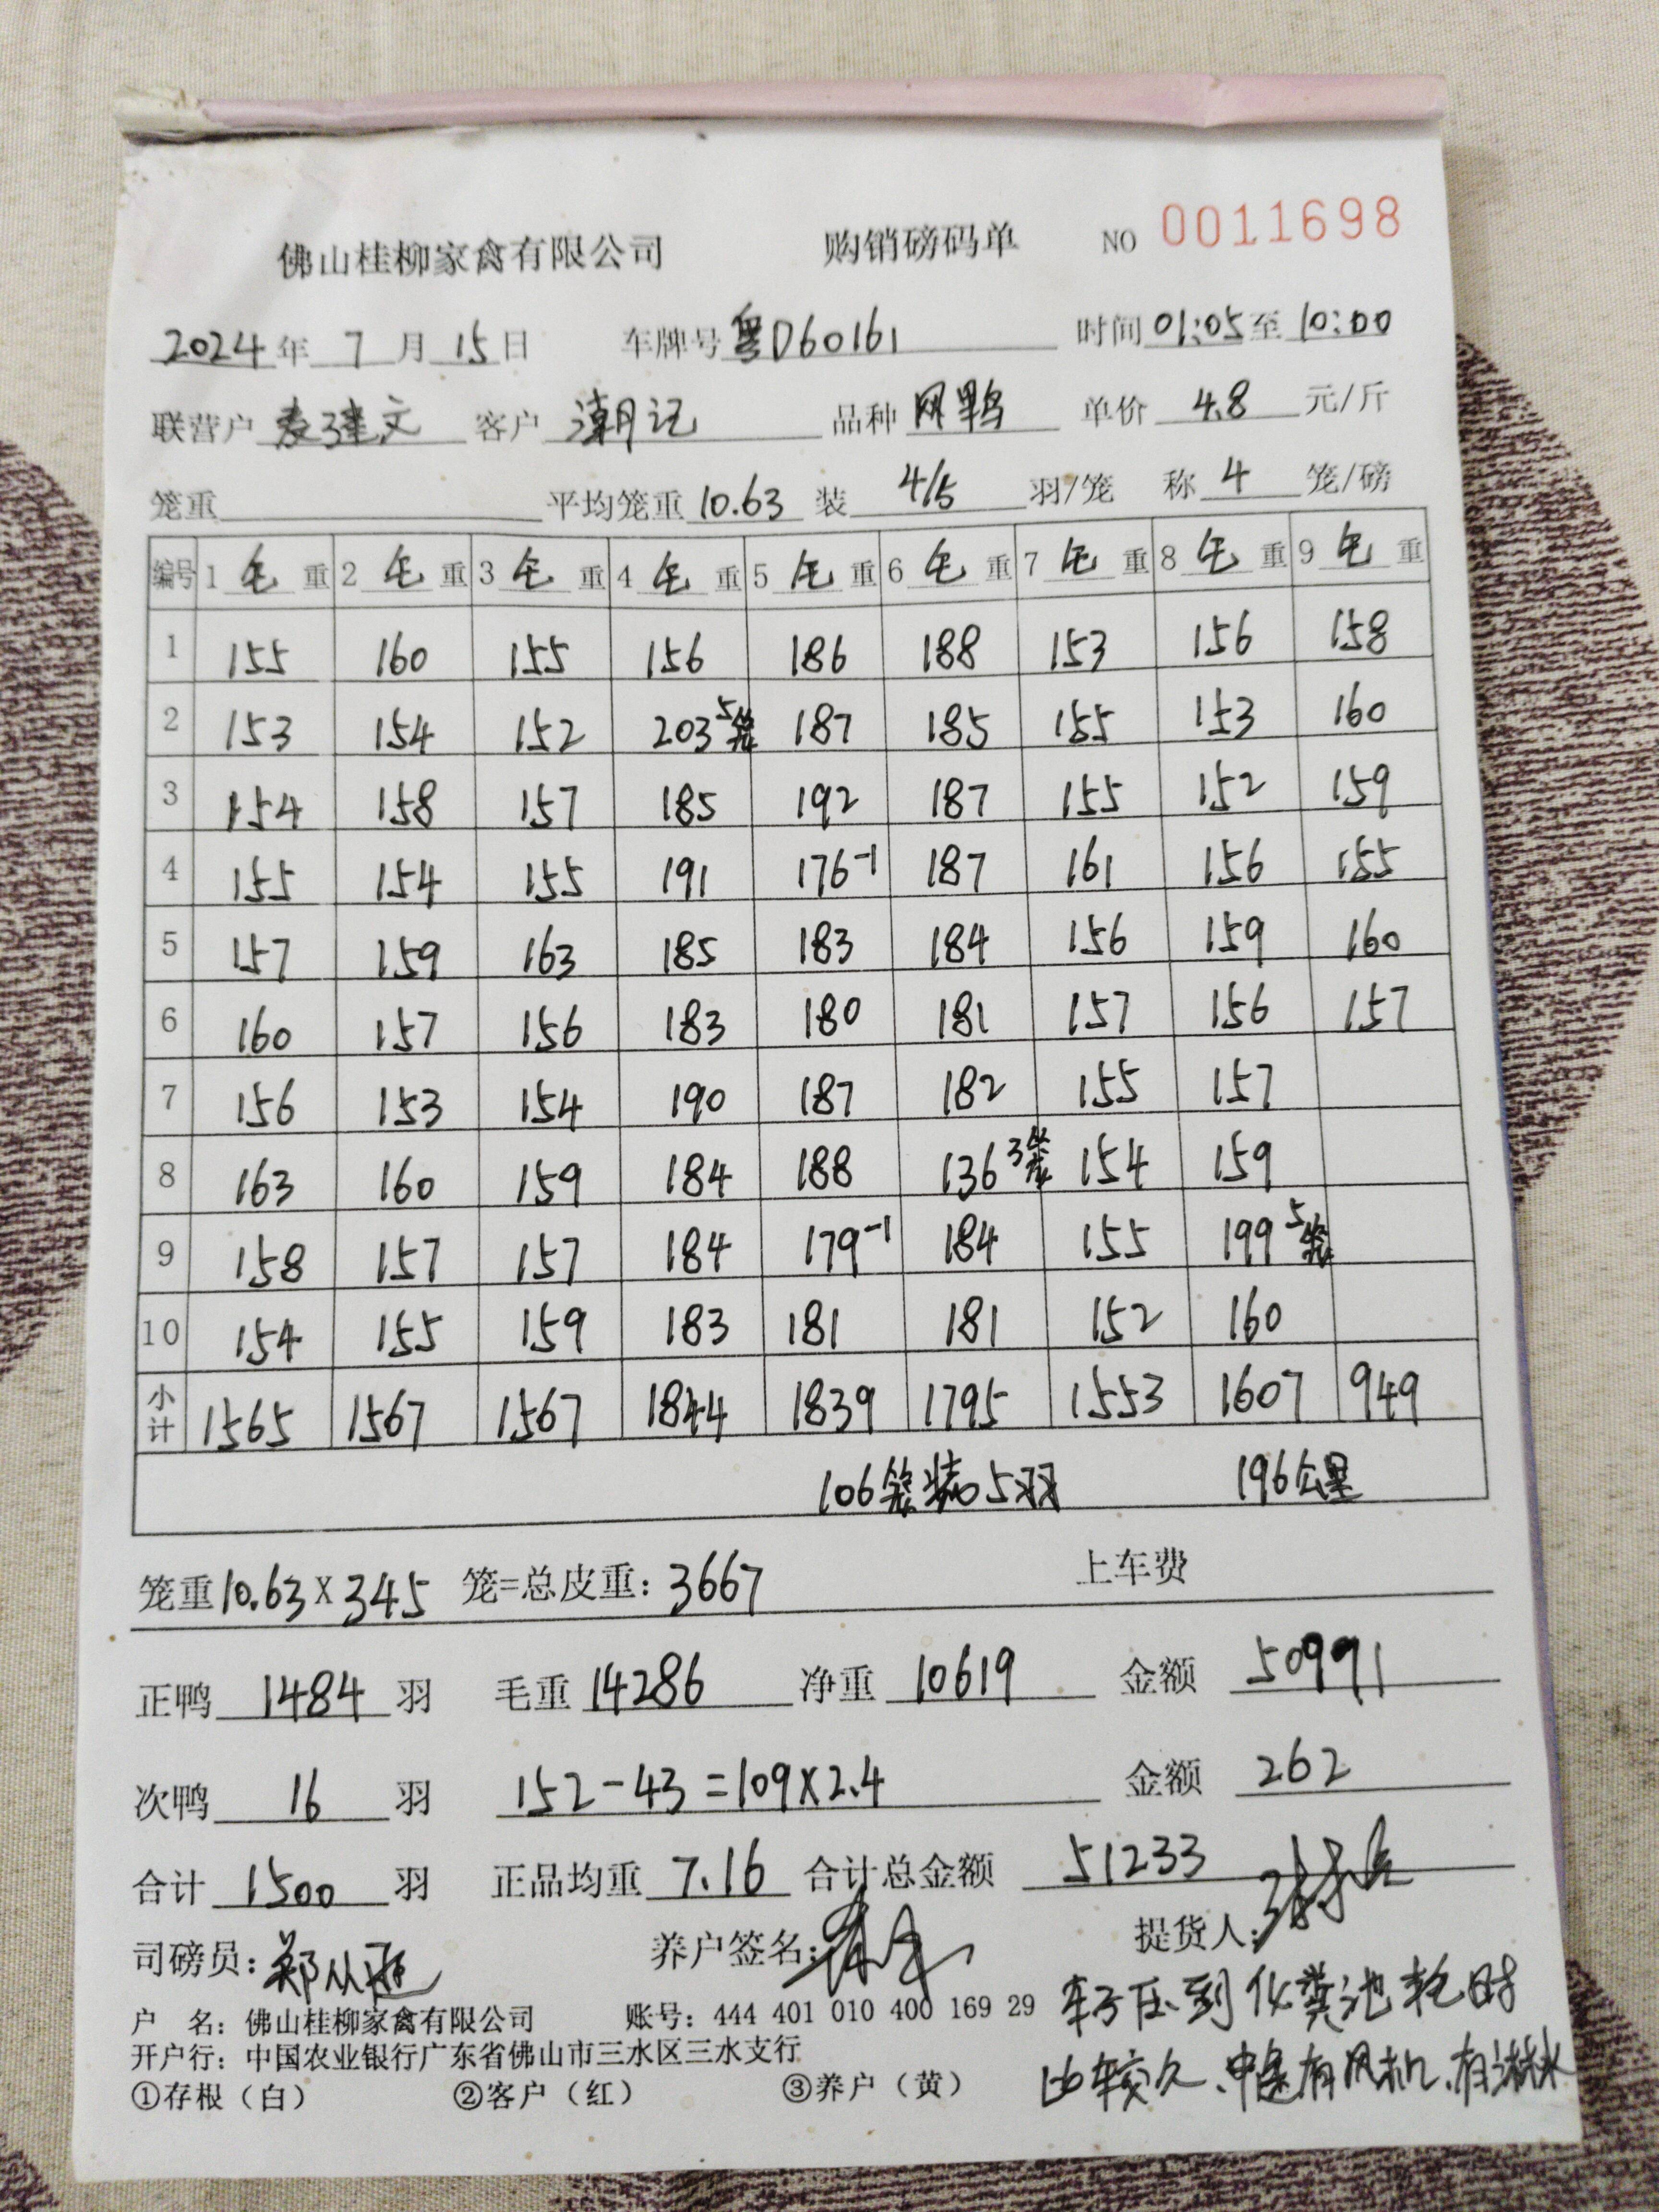 佛山桂柳家禽有限公司 购销磅码单 NO 0011698
2024年 7月 15日 车牌号 粤D60161 时间 01:05 至 10:00
联营户 麦建文 客户 潮记 品种 网鸭 单价 4.8 元/斤
笼重 平均笼重 10.63 装 4/5 羽/笼 称 4 笼/磅
编号 1 毛 重 2 毛 重 3 毛 重 4 毛 重 5 毛 重 6 毛 重 7 毛 重 8 毛 重 9 毛 重
1 155 160 155 156 186 188 153 156 158
2 153 154 152 203 5笼 187 185 155 153 160
3 154 158 157 185 192 187 155 152 159
4 155 154 155 191 176-1 187 161 156 155
5 157 159 163 185 183 184 156 159 160
6 160 157 156 183 180 181 157 156 157
7 156 153 154 190 187 182 155 157
8 163 160 159 184 188 136 3笼 154 159
9 158 157 157 184 179-1 184 155 199 5笼
10 154 155 159 183 181 181 152 160
小计 1565 1567 1567 1844 1839 1795 1553 1607 949
106笼装5羽 196公里
笼重 10.63 X 345 笼=总皮重: 3667 上车费
正鸭 1484 羽 毛重 14286 净重 10619 金额 50991
次鸭 16 羽 152-43=109X2.4 金额 262
合计 1500 羽 正品均重 7.16 合计总金额 51233
司磅员: 郑从 养户签名: 提货人:
户 名: 佛山桂柳家禽有限公司 账号: 444 401 010 400 169 29
开户行: 中国农业银行广东省佛山市三水区三水支行
①存根（白） ②客户（红） ③养户（黄）
车子压到化粪池耗时
比较久、中途有风机、有淋水